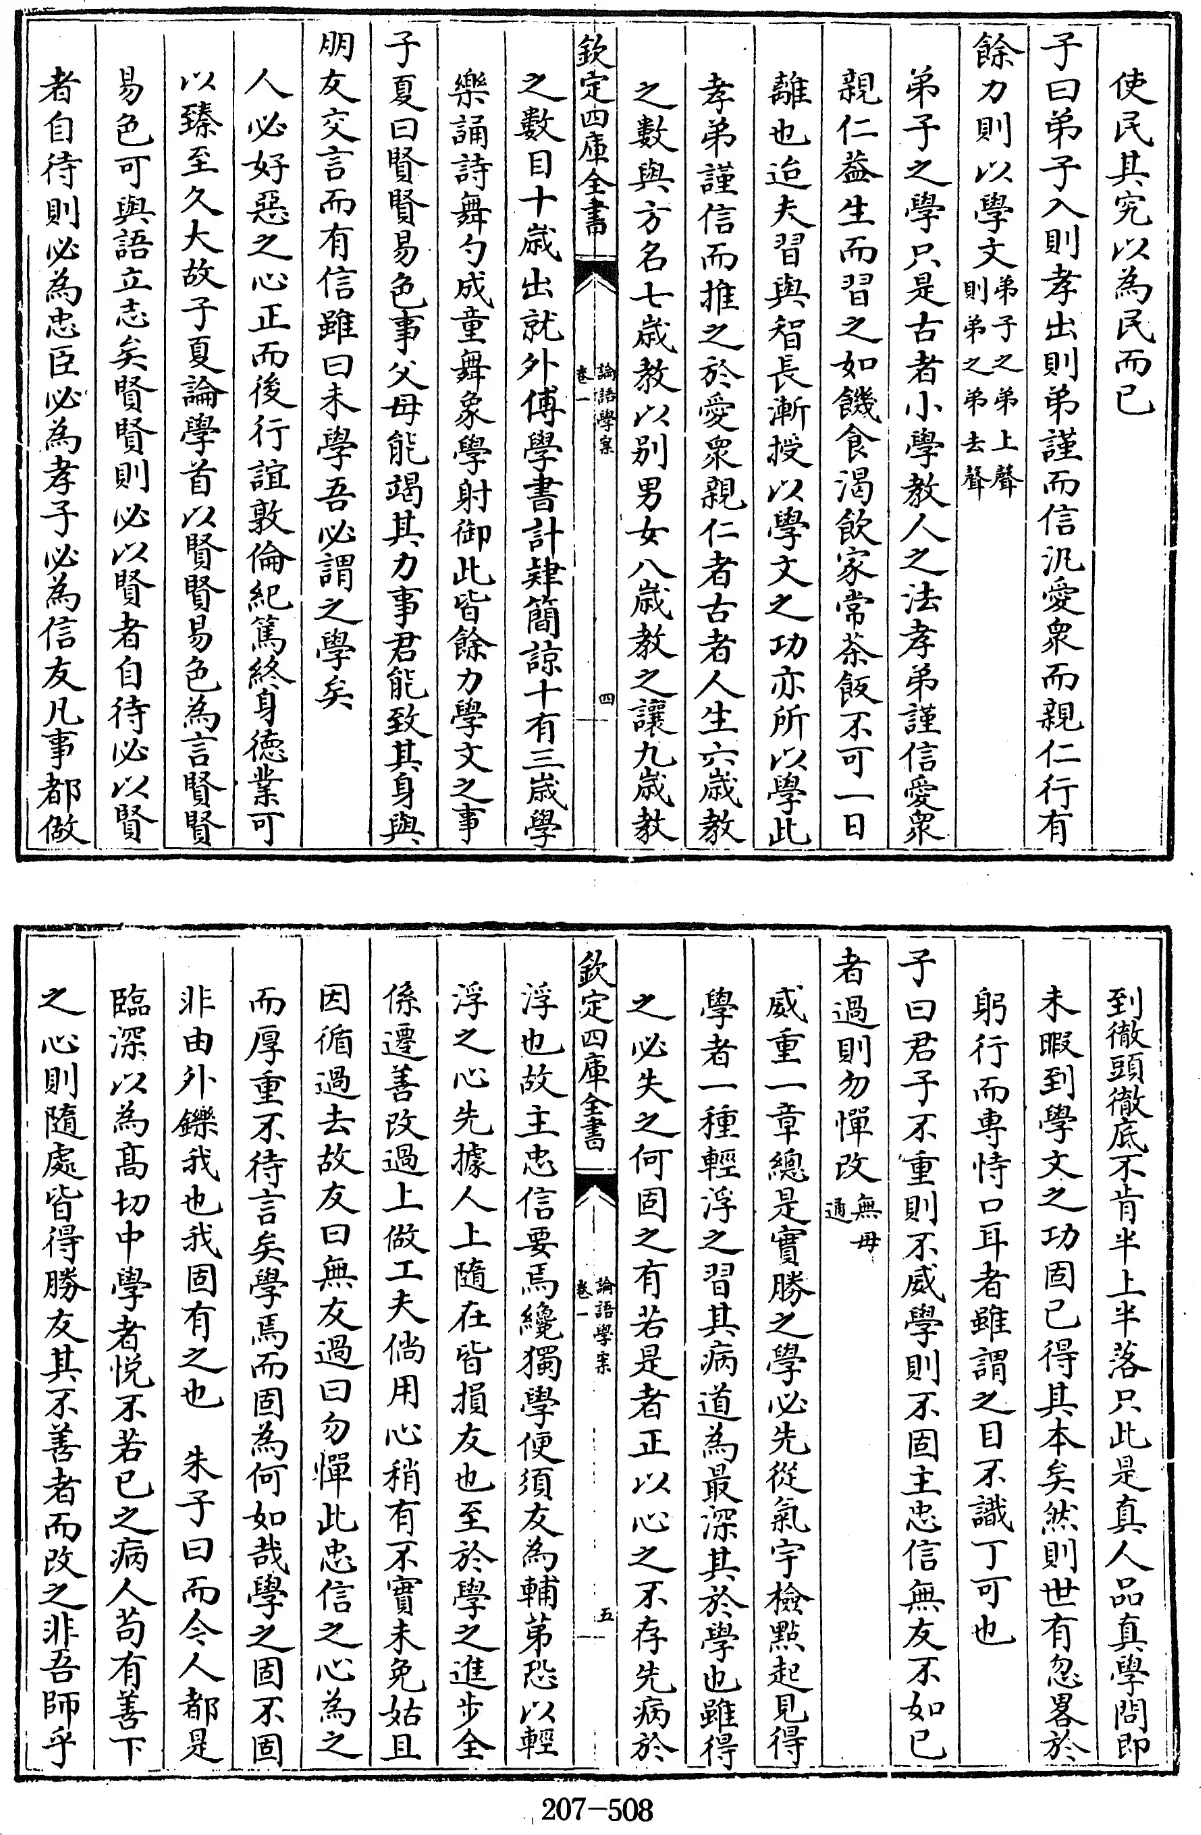 使民其究以為民而已
子曰弟子入則孝出則弟謹而信汎愛衆而親仁行有
餘力則以學文弟子之弟上聲則弟之弟去聲
弟子之學只是古者小學教人之法孝弟謹信愛衆
親仁葢生而習之如饑食渴飲家常茶飯不可一日
離也迨夫習與智長漸授以學文之功亦所以學此
孝弟謹信而推之於愛衆親仁者古者人生六歲教
之數與方名七歲教以别男女八歲教之讓九歲教
欽定四庫全書
論語學案
卷一
四
之數目十歲出就外傅學書計肄簡諒十有三歲學
樂誦詩舞勺成童舞象學射御此皆餘力學文之事
子夏曰賢賢易色事父母能竭其力事君能致其身與
朋友交言而有信雖曰未學吾必謂之學矣
人必好惡之心正而後行誼敦倫紀篤終身德業可
以臻至久大故子夏論學首以賢賢易色為言賢賢
易色可與語立志矣賢賢則必以賢者自待必以賢
者自待則必為忠臣必為孝子必為信友凡事都做
到徹頭徹底不肯半上半落只此是真人品真學問即
未暇到學文之功固已得其本矣然則世有忽畧於
躬行而專恃口耳者雖謂之目不識丁可也
子曰君子不重則不威學則不固主忠信無友不如已
者過則勿憚改無毋通
威重一章總是實勝之學必先從氣宇檢點起見得
學者一種輕浮之習其病道為最深其於學也雖得
之必失之何固之有若是者正以心之不存先病於
欽定四庫全書
論語學案
卷一
五
浮也故主忠信要焉纔獨學便須友為輔第恐以輕
浮之心先據人上隨在皆損友也至於學之進步全
係遷善改過上做工夫倘用心稍有不實未免姑且
因循過去故友曰無友過曰勿憚此忠信之心為之
而厚重不待言矣學焉而固為何如哉學之固不固
非由外鑠我也我固有之也　朱子曰而今人都是
臨深以為高切中學者悦不若已之病人苟有善下
之心則隨處皆得勝友其不善者而改之非吾師乎
207-508